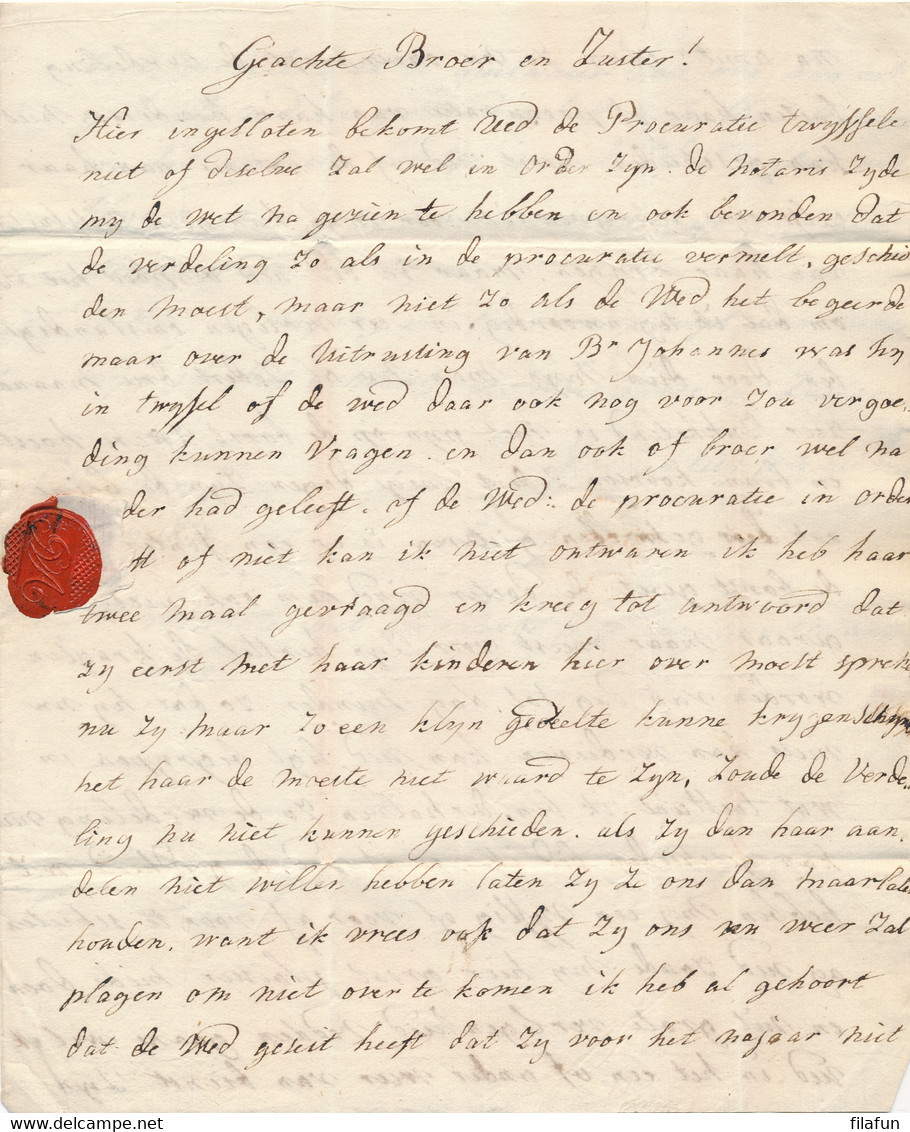 Geachte Broer en Zuster!
Hier ingesloten bekomt Ued de Procuratie twyffele
niet of deselve Zal wel in Order Zyn. de Notaris Zyde
my de wet na gezien te hebben en ook bevonden dat
de verdeling Zo als in de procuratie vermelt, geschie
den moest, maar niet Zo als de Wed. het begeerde
maar over de Uitrusting van Br Johannes was hy
in twyfel of de wed daar ook nog voor Zou vergoe,,
ding kunnen Vragen. en dan ook of broer wel na
der had geleeft. of de Wed: de procuratie in order
of niet kan ik niet ontwaren ik heb haar
twee maal gevraagd en kreeg tot antwoord dat
Zy eerst met haar kinderen hier over moest spreke
nu Zy maar Zo een klyn gedeelte kunne krygen schynt
het haar de moeite niet waard te Zyn, Zoude de Verde,,
ling nu niet kunnen geschieden. als Zy dan haar aan,
delen niet willen hebben laten Zy Ze ons dan maar late
houden, want ik vrees ook dat Zy ons nu weer Zal
plagen om niet over te komen ik heb al gehoort
dat de Wed geseit heeft dat Zy voor het najaar niet
filafun